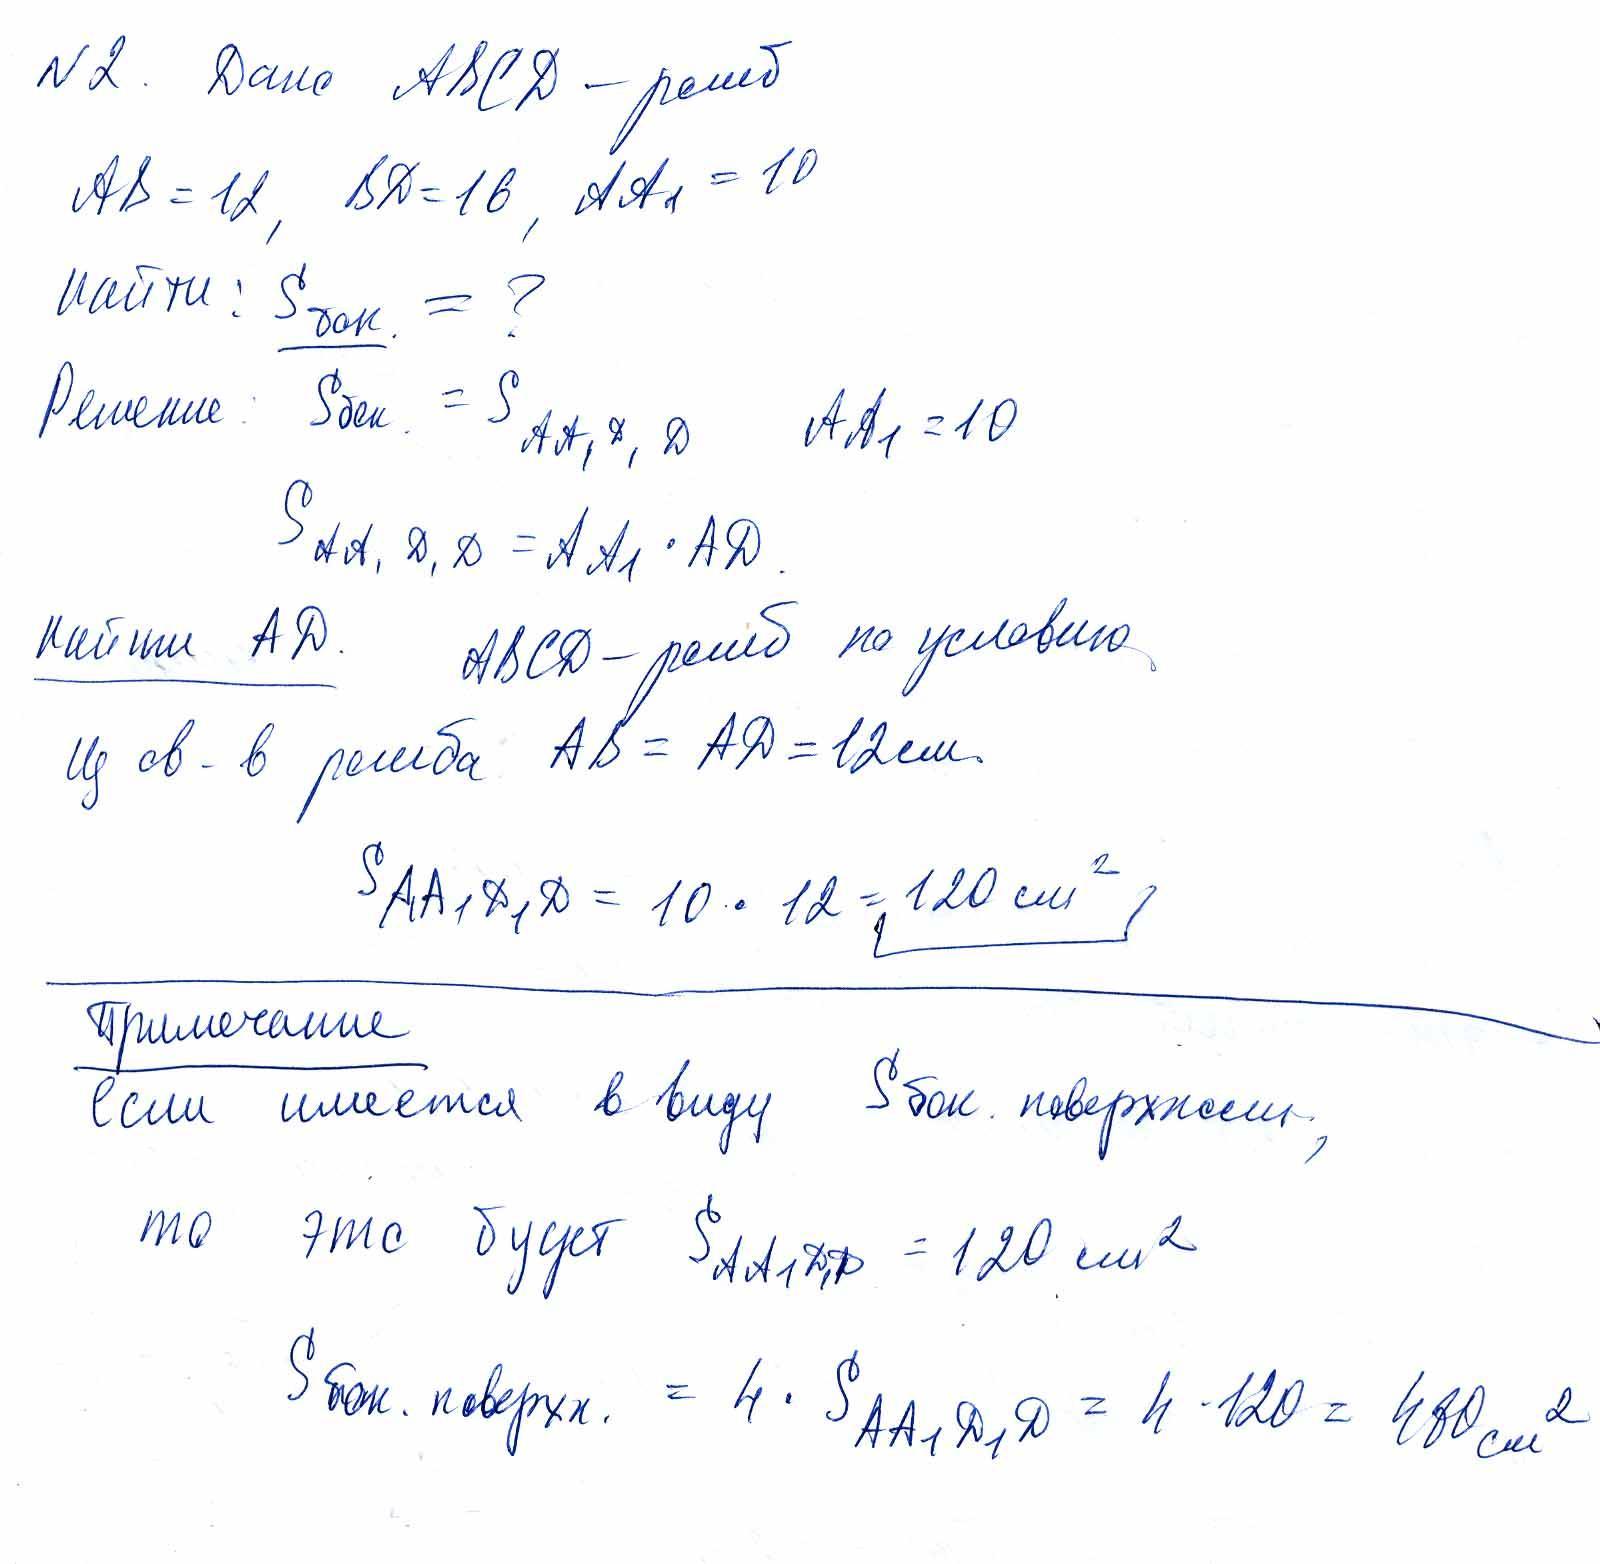 N2. Дано ABCD – ромб
AB = 12, BD = 16, AA₁ = 10
Найти: Sбок. = ?
Решение: Sбок. = S AA₁D₁D AA₁ = 10
S AA₁D₁D = AA₁ · AD.
Найти AD. ABCD – ромб по условию,
Из св-в ромба AB = AD = 12 см.
S AA₁D₁D = 10 · 12 = 120 см²
Примечание
Если имеется в виду Sбок. поверхности,
то это будет S AA₁D₁D = 120 см²
Sбок. поверхн. = 4 · S AA₁D₁D = 4 · 120 = 480 см²